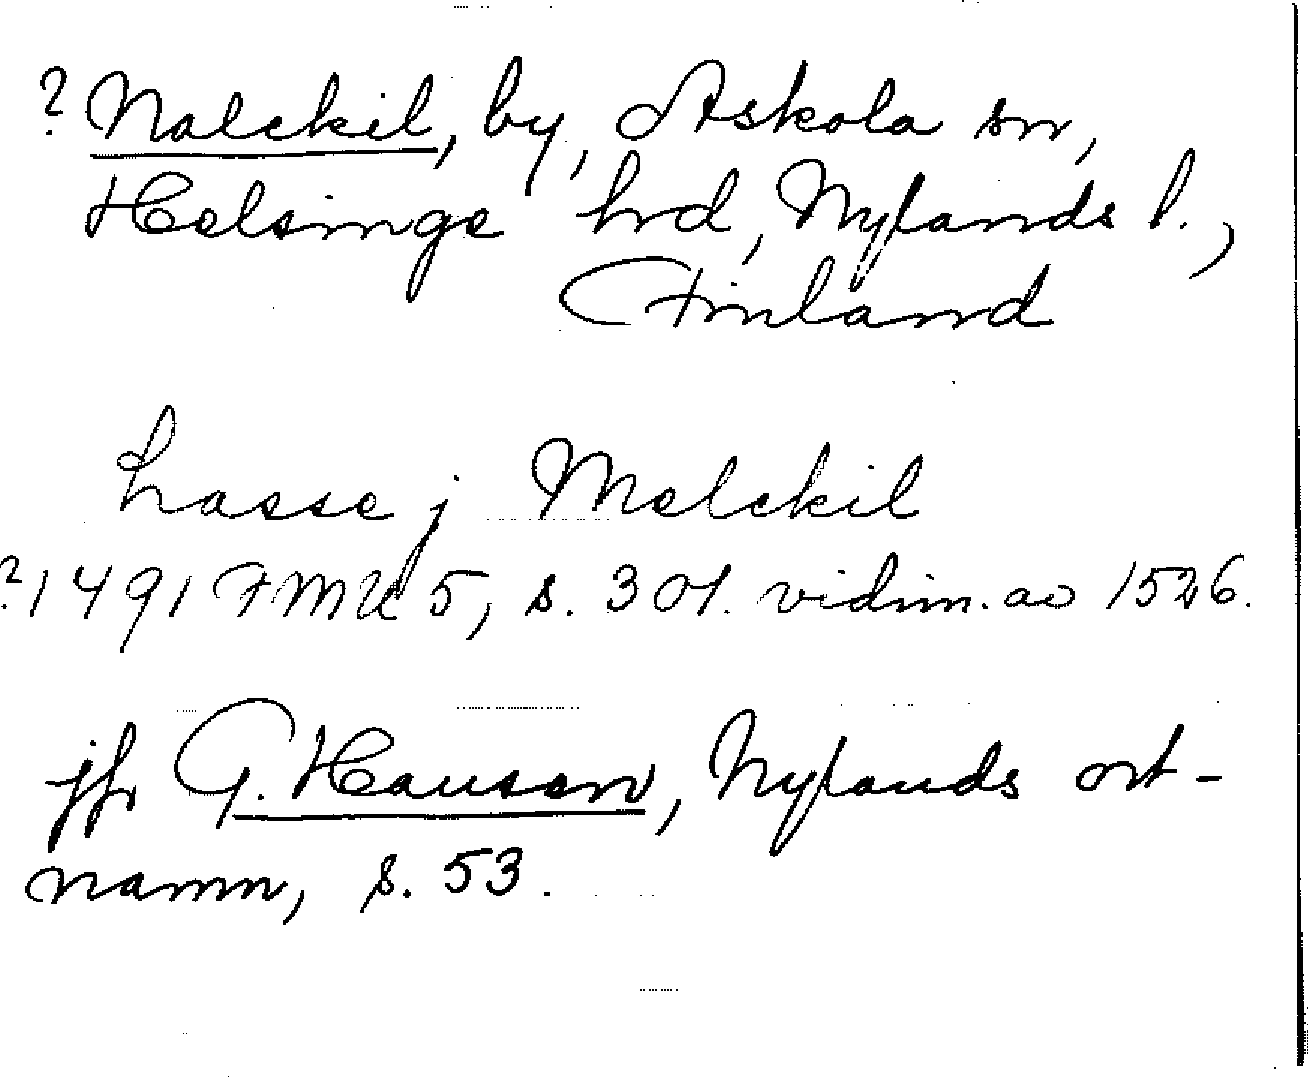 ? Nalckil, by, Askola sn,
Helsinge hrd, Nylands l.,
Finland
Lasse j Malckil
? 1491 FMU 5, s. 301. vidim. ao 1526.
jfr G. Hausen, Nylands ort-
namn, s. 53.